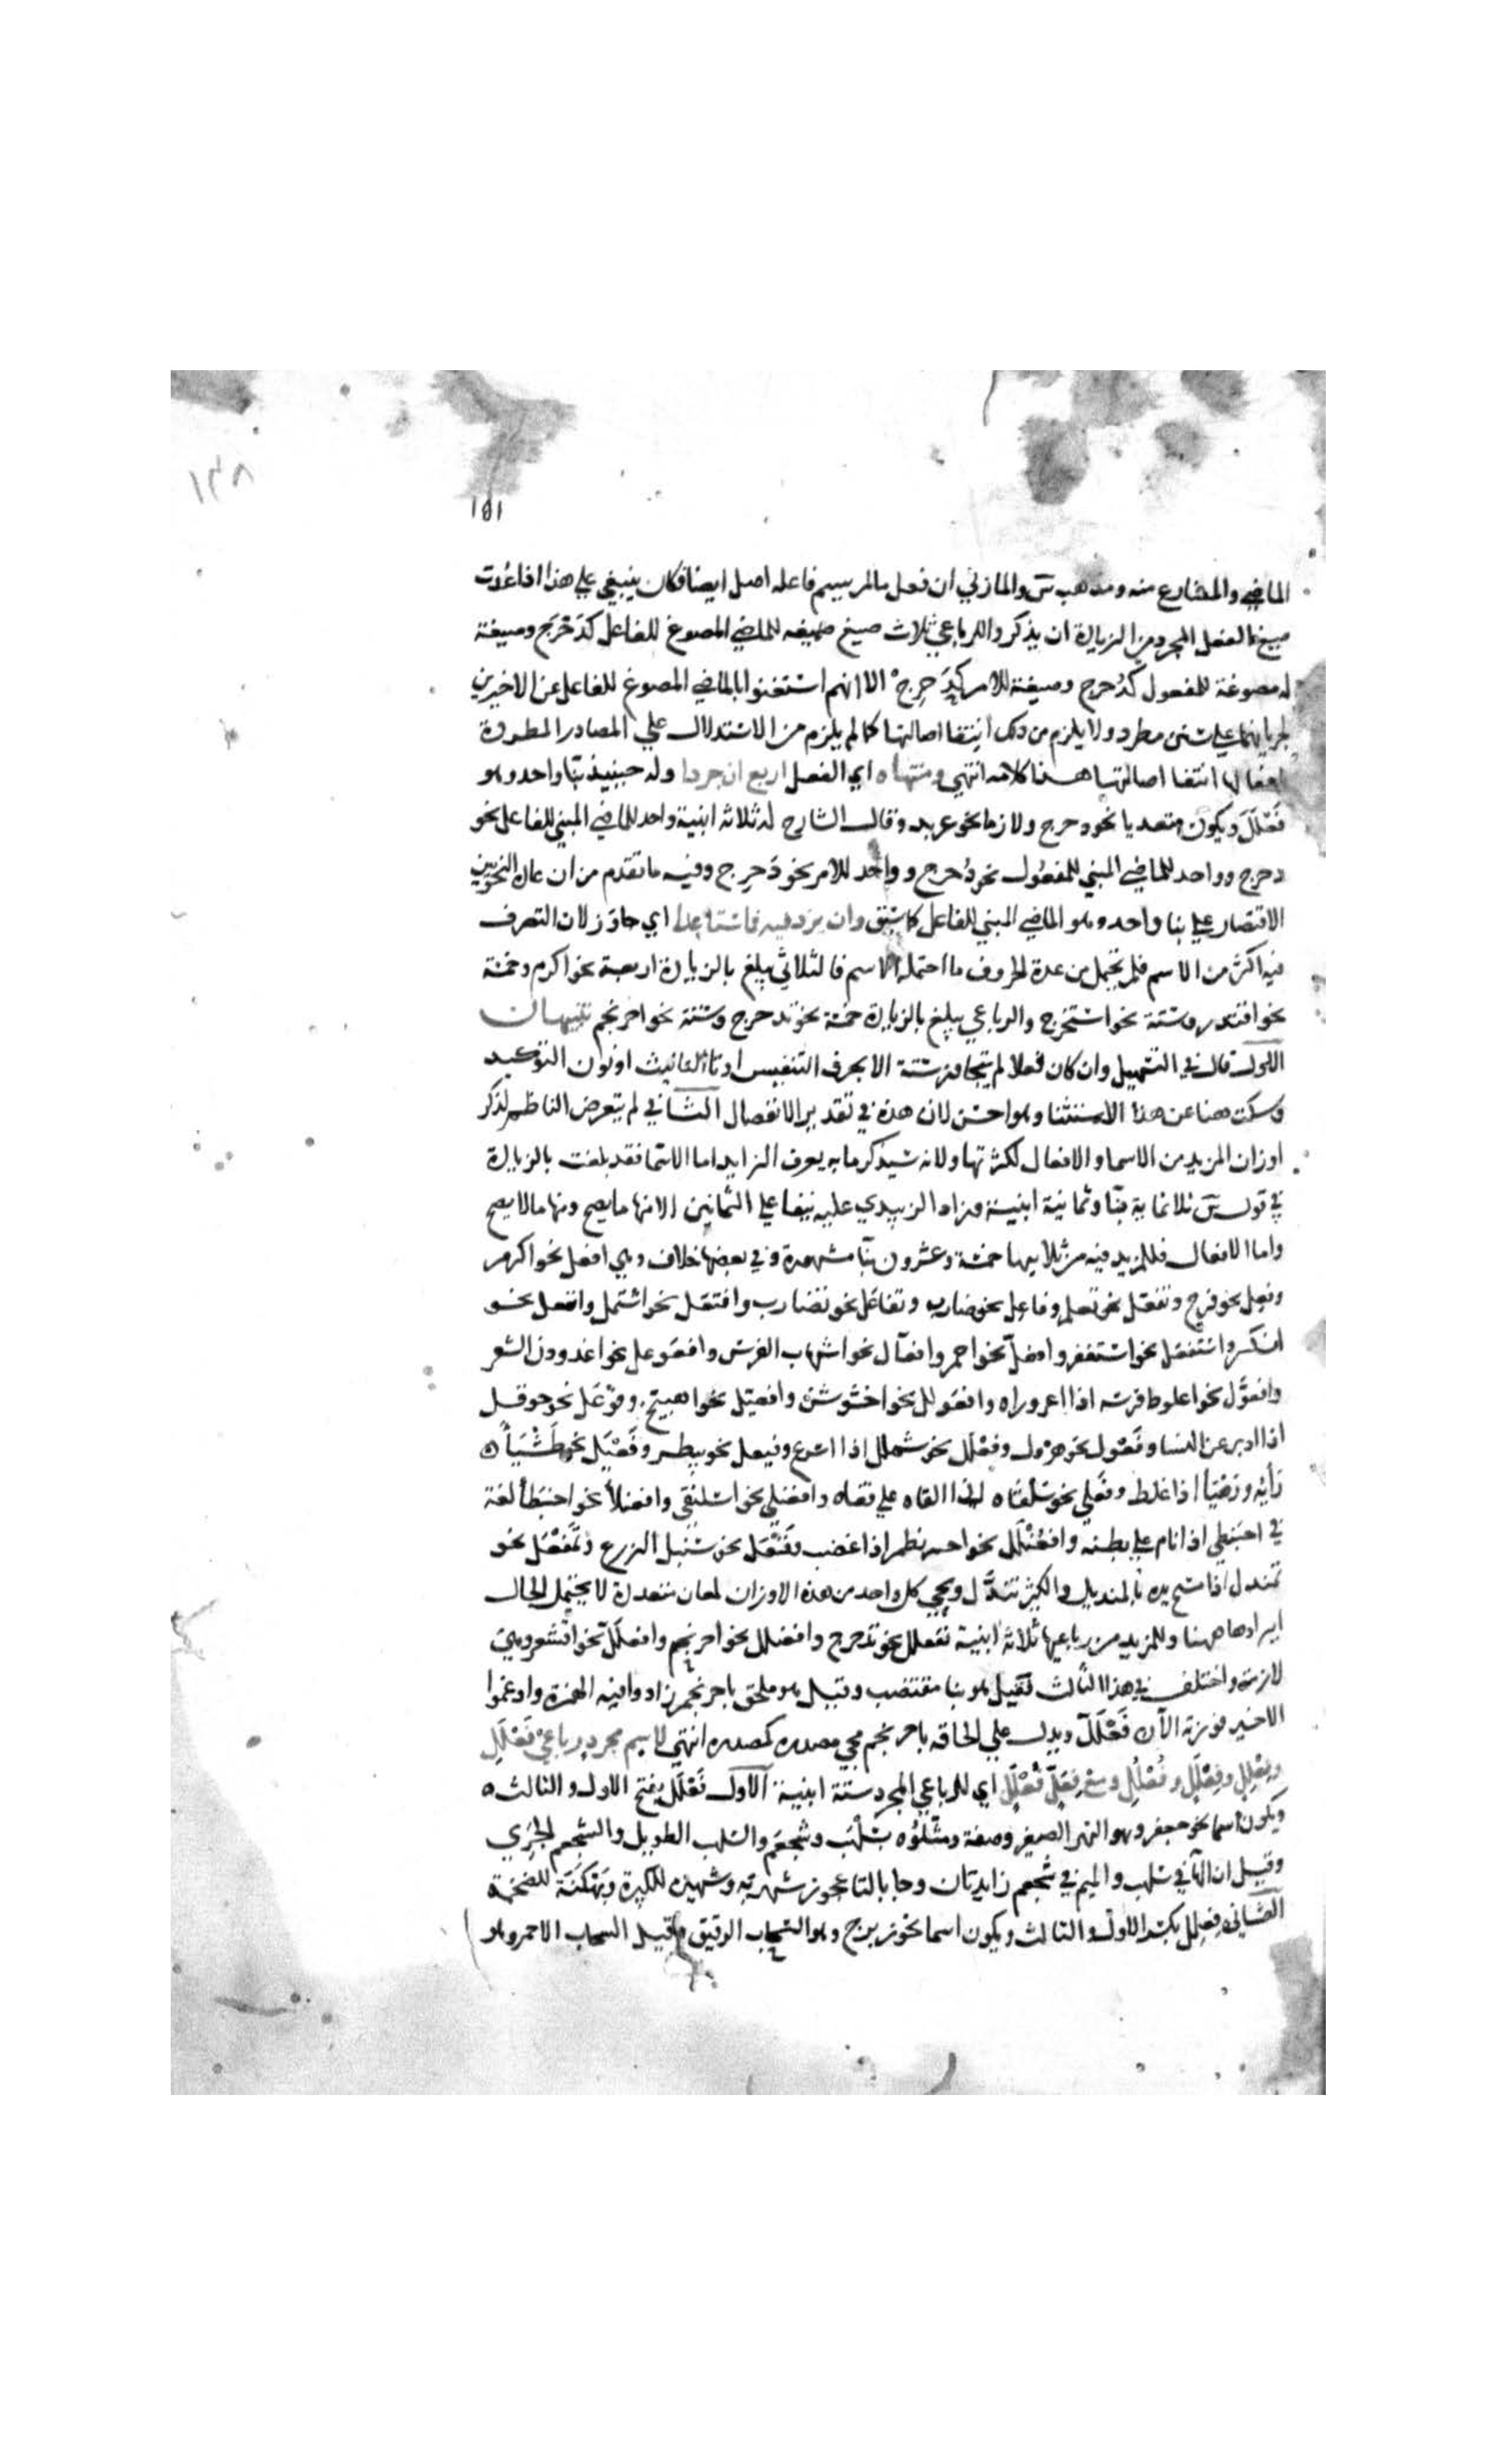 ١٣٨
١٥١
الماضي والمضارع منه ومذهب س والمازني ان فعل ما لم يسم فاعله اصل ايضا فكان ينبغي علي هذا اذا عُدت
صيغ الفعل المجرد من الزيادة ان يذكر واللرباعي ثلاث صيغ صيغه للماضي المصوغ للفاعل كدَحْرَج وصيغة
له مصوغة للمفعول كدُحرج وصيغة للامر كدَحرِجْ الا انهم استغنوا بالماضي المصوغ للفاعل عن الاخيرين
لجريانهما علي سنن مطرد ولا يلزم من ذلك انتفا اصالتها كما لم يلزم من الاستدلال علي المصادر المطردة
بافعالها انتفا اصالتها هذا كلامه انتهي ومنتهاه اي الفعل اربع ان جردا وله حينيذ بنا واحد وهو
فَعْلَلَ ويكون متعديا نحو دحرج ولازما نحو عربد وقال الشارح له ثلاثه ابنية واحد للماضي المبني للفاعل نحو
دحرج وواحد للماضي المبني للمفعول نحو دُحرج وواحد للامر نحو دَحرِج وفيه ما تقدم من ان عادة النحويين
الاقتصار علي بنا واحد وهو الماضي المبني للفاعل كما سبق وان يزد فيه فما ستا عدا اي جاوز لان التصرف
فيه اكثر من الاسم فلم يحتمل من عدة الحروف ما احتمله الاسم فالثلاثي يبلغ بالزيادة اربعة نحو اكرم وخمسة
نحو اقتدر وستة نحو استخرج والرباعي يبلغ بالزيادة خمسة نحو تدحرج وستة نحو احرنجم تنبيهات
الاول قال في التسهيل وان كان فعلا لم يتجاوز ستة الا بحرف التنفيس او تا التانيث او نون التوكيد
وسكت هنا عن هذا الاستثنا وهو احسن لان هذه في تقدير الانفصال الثاني لم يتعرض الناظم لذكر
اوزان المزيد من الاسما والافعال لكثرتها ولانه سيذكر ما به يعرف الزايد اما الاسما فقد بلغت بالزيادة
في قول س ثلاثماية بنا وثمانية ابنية وزاد الزبيدي عليه نيفا علي الثمانين الا انها ما يصح ومنها ما لا يصح
واما الافعال فللمزيد فيه من ثلاثيها خمسة وعشرون بنا مشهورة وفي بعضها خلاف وهي افعل نحو اكرم
وفعل نحو فرح وتفعّل نحو تعلم وفاعل نحو ضارب وتفاعَل نحو تضارب وافتعل نحو اشتمل وانفعل نحو
انكسر واستفعل نحو استغفر وافعلّ نحو احمر وافعالّ نحو اشهاب الفرس وافعوعل نحو اغدودن الشعر
وافعوّل نحو اعلوط فرسه اذا اعروراه وافعولل نحو اخشوشن وافعيّل نحو اهبيّخ وفوعَل نحو حوقل
اذا ادبر عن النسا وفَعْول نحو هرول وفعْلَل نحو شملل اذا اسرع وفيعل نحو بيطر وفَعْيَل نحو طَشْيَأ
رأيه ورَهْيَأ اذا غلط وفَعْلَي نحو سَلْقاه اذا القاه علي قفاه وافعنلي نحو اسلنقي وافعنلأ نحو احبنطأ لغة
في احبنطي اذا نام علي بطنه وافعُنْلَل نحو اذا غضب وفَنْعَل نحو سنبل الزرع وتَمَفْعَل نحو
تمندل اذا مسح يده بالمنديل والكثير تندّل ويجي كل واحد من هذه الاوزان لمعان متعددة لا يحتمل الحال
ايرادها ههنا وللمزيد من رباعيها ثلاثة ابنية تفعلل نحو تدحرج وافعنلل نحو احرنجم وافعلَلّ نحو اقشعر وهي
لازمة واختلف في هذا الثالث فقيل هو بنا مقتضب وقيل هو ملحق باحرنجم زادوا فيه الهمزة وادغموا
الاخير فوزنه الآن فَعْلَلّ ويدل علي الحاقه باحرنجم مجي مصدره كمصدره انتهي لاسم مجرد رباعٍ فَعْلَلُ
وفِعْلِل وفِعْلَل وفُعْلُل ومع فِعَلّ فُعْلَل اي للرباعي المجرد ستة ابنية الاول فَعْلَل بفتح الاول والثالث
ويكون اسما نحو جعفر وهو النهر الصغير وصفة ومثلوه بسَلْهَب وشجعم والسلهب الطويل والشجعم الجَري
وقيل ان الها في سلهب والميم في شجعم زايدتان وجا بالتا عجوز شهربة وشهبرة للكبيرة وبَهْكَنَة للضخمة
الثاني فِعلِل بكسر الاول والثالث ويكون اسما نحو زبرج وهو السحاب الرقيق وقيل السحاب الاحمر وهو